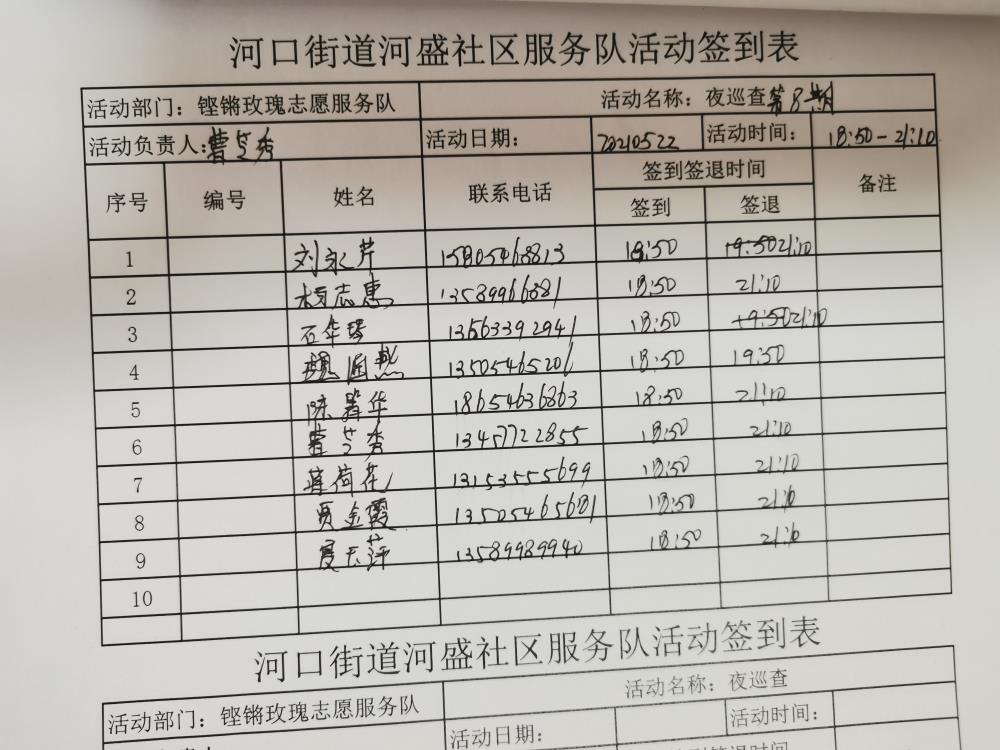 河口街道河盛社区服务队活动签到表
活动部门：铿锵玫瑰志愿服务队 活动名称：夜巡查第8期
活动负责人：曹芝秀 活动日期： 20210522 活动时间： 18:50-21:10
序号 编号 姓名 联系电话 签到签退时间 备注
签到 签退
1 刘永芹 15905468813 18:50 19:50 21:10
2 杨志惠 13589966881 18:50 21:10
3 石华 13563392941 18:50 19:50 21:10
4 13505465201 18:50 19:50
5 陈翠华 18654636863 18:50 21:10
6 曹芝秀 13457722855 18:50 21:10
7 蒋荷花 13153555699 18:50 21:10
8 贾金霞 13505465681 18:50 21:10
9 夏玉萍 13589989940 18:50 21:10
10
河口街道河盛社区服务队活动签到表
活动部门：铿锵玫瑰志愿服务队 活动名称：夜巡查
活动日期： 活动时间：